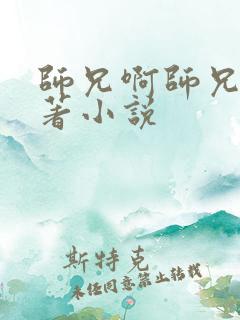 師兄啊師兄
著小説
斯特克
未经同意禁止转载